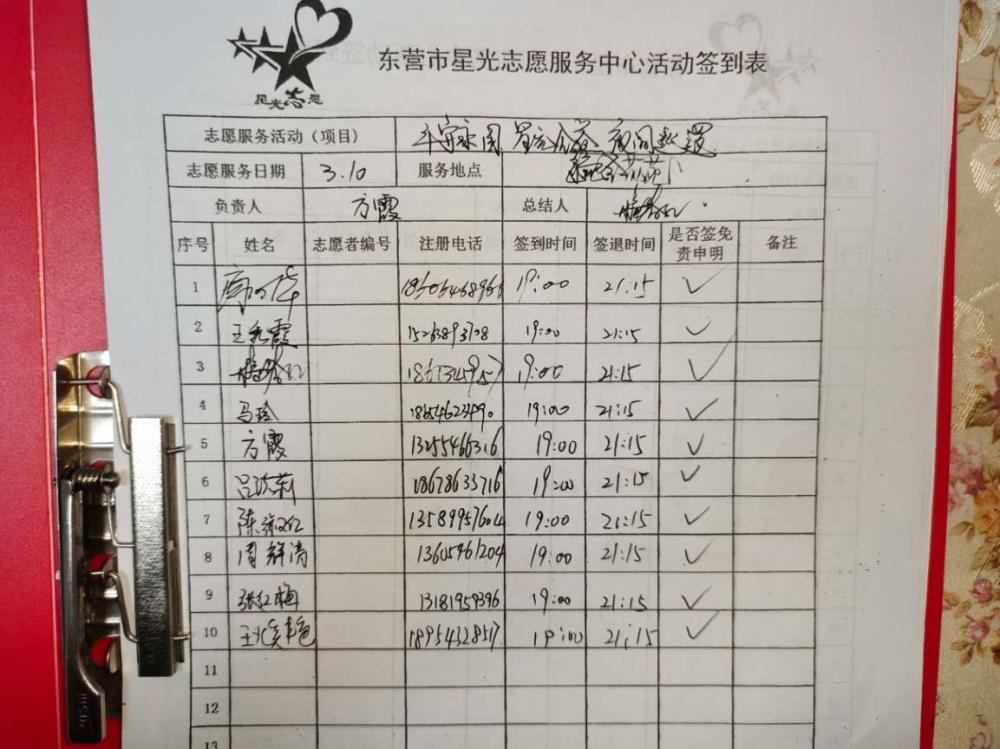 星光志愿
东营市星光志愿服务中心活动签到表
志愿服务活动（项目） 平安家园 星光公益 夜间巡逻
志愿服务日期 3.10 服务地点
负责人 方霞 总结人
序号 姓名 志愿者编号 注册电话 签到时间 签退时间 是否签免责申明 备注
1 19:00 21:15 ✓
2 王秀霞 15263893708 19:00 21:15 ✓
3 19:00 21:15 ✓
4 马玲 19:00 21:15 ✓
5 方霞 13255466316 19:00 21:15 ✓
6 18678633716 19:00 21:15 ✓
7 陈淑红 13589957604 19:00 21:15 ✓
8 周群清 13605461204 19:00 21:15 ✓
9 张红梅 13181959396 19:00 21:15 ✓
10 18954328517 19:00 21:15 ✓
11
12
13